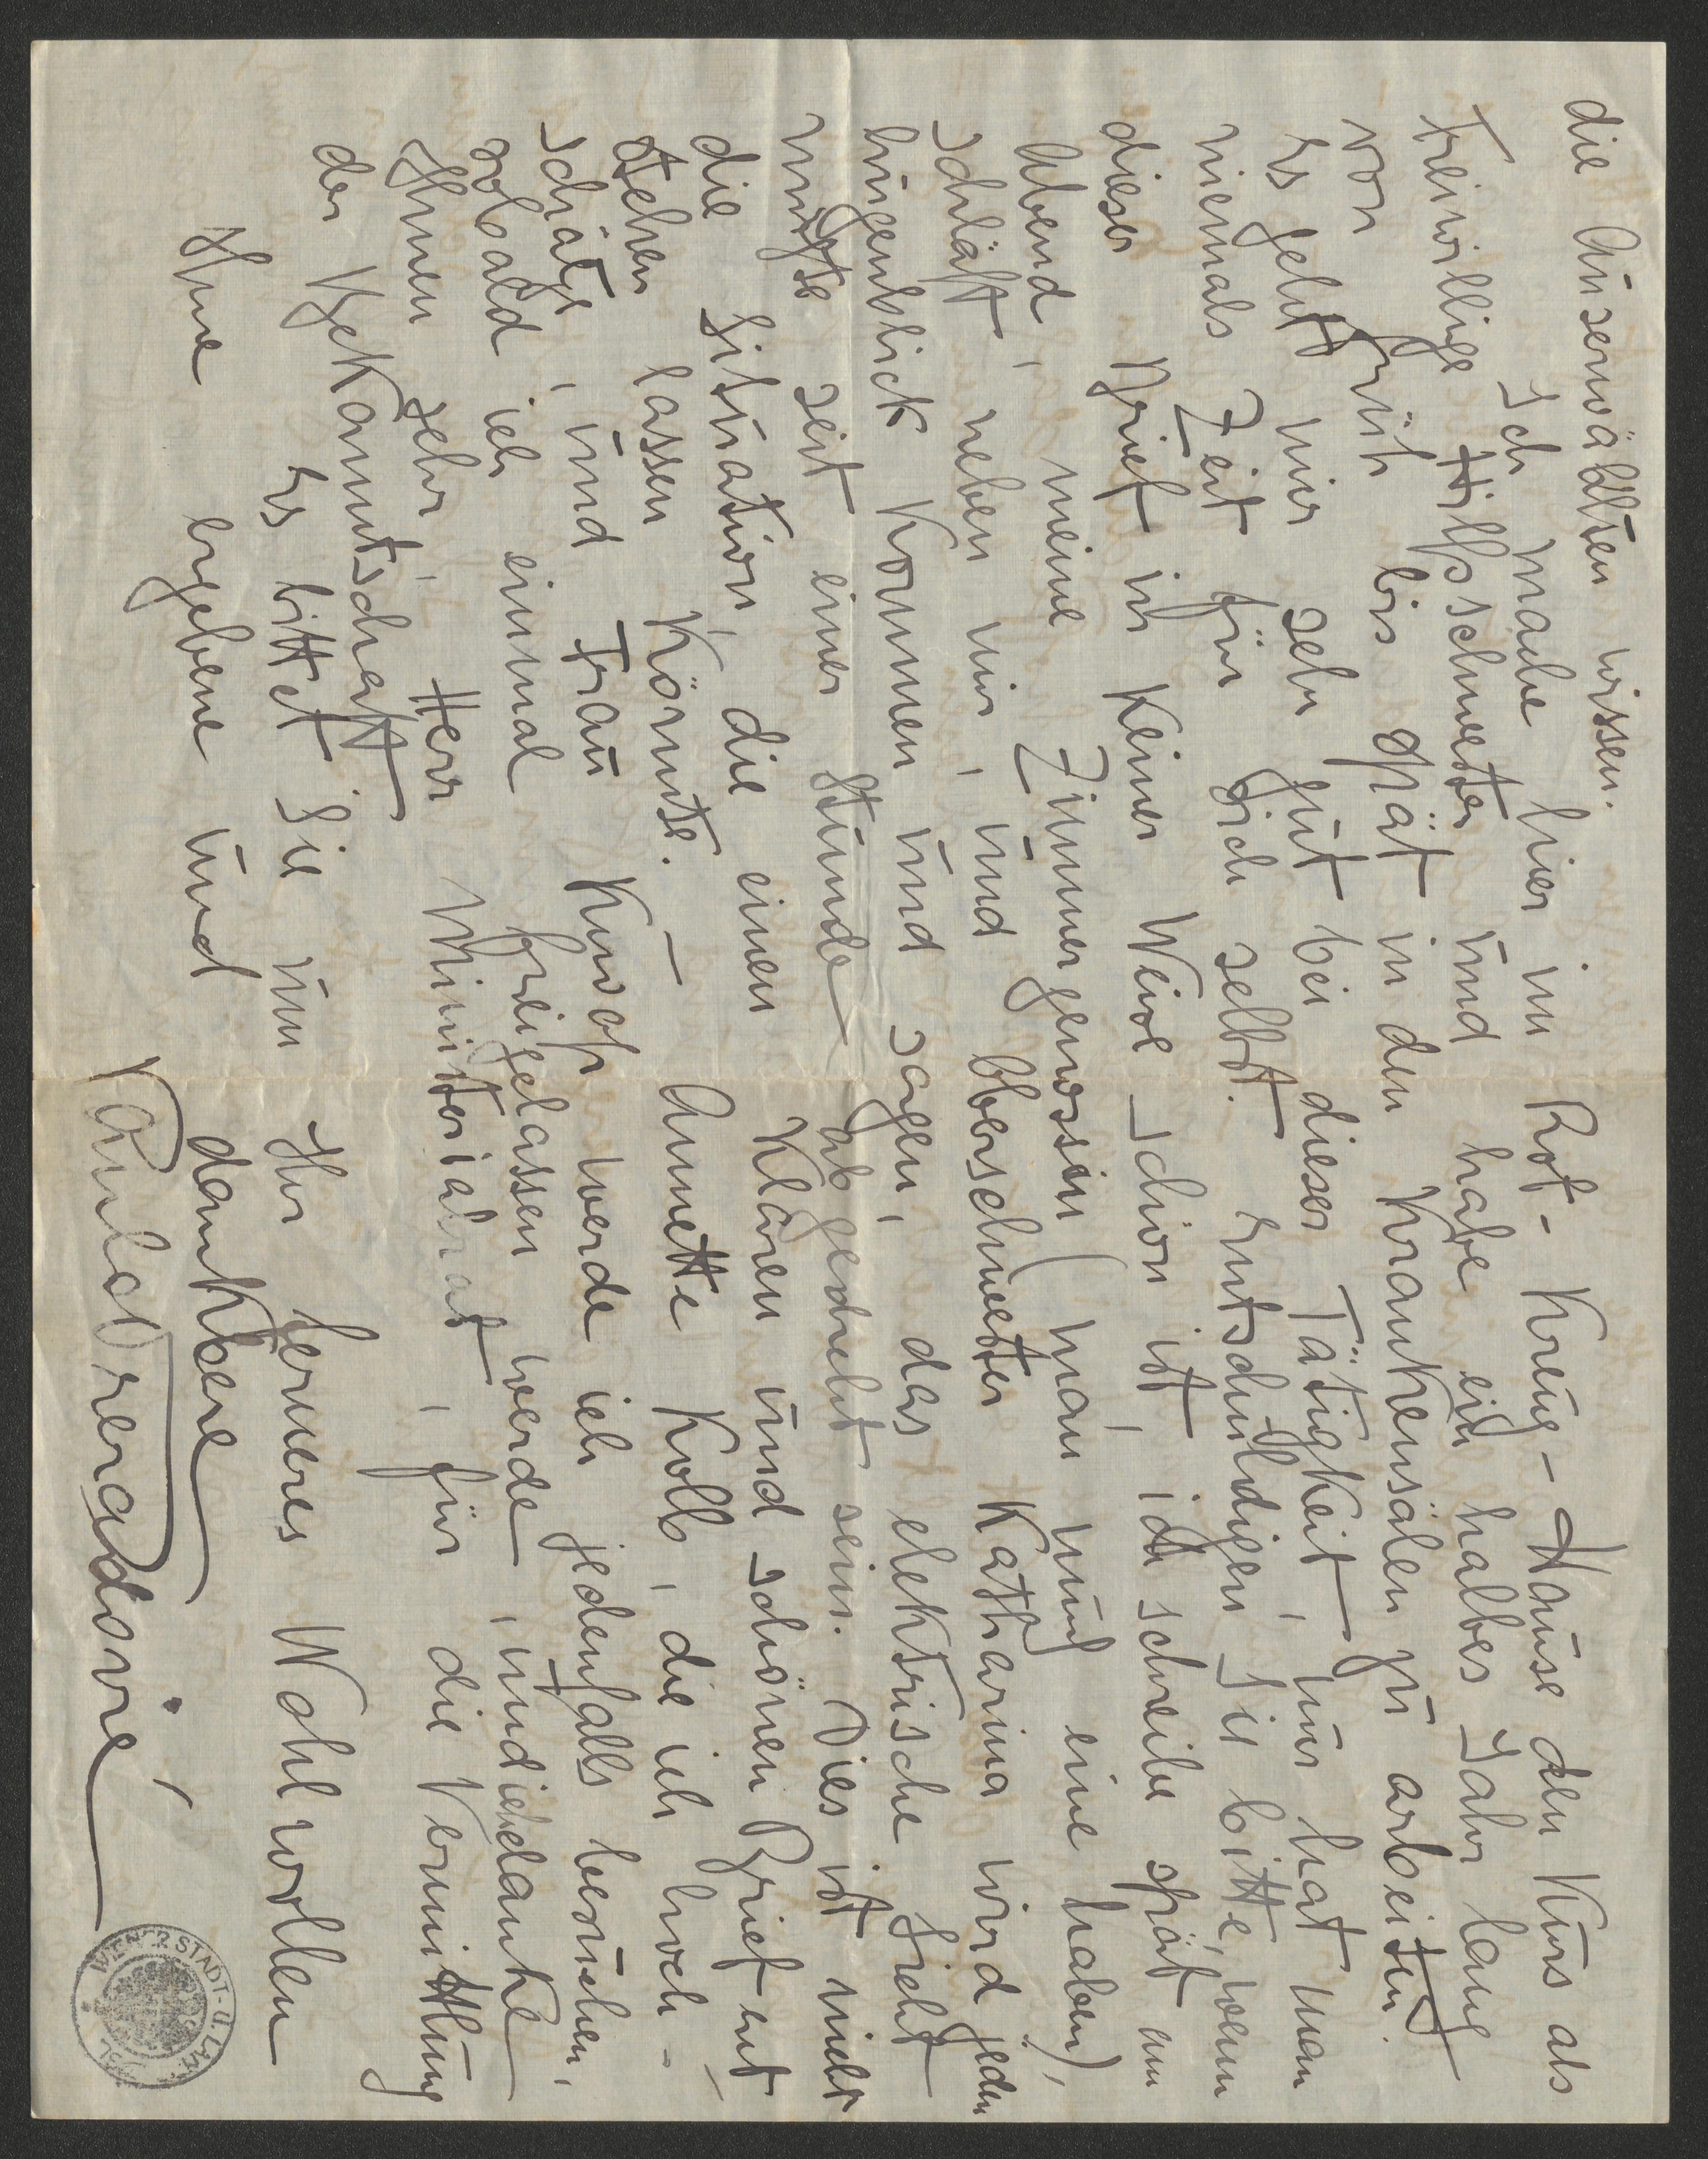 die Auserwählten wissen.
Ich mache hier im Rot-Kreuz-Hause den Kurs als
Freiwillige Hilfsschwester und habe ein halbes Jahr lang
von früh bis spät in den Krankensälen zu arbeiten.
Es geht mir sehr gut bei dieser Tätigkeit, nur hat man
niemals Zeit für sich selbst. Entschuldigen Sie bitte, wenn
dieser Brief in keiner Weise schön ist, ich schreibe spät am
Abend, meine Zimmergenossin (man muß eine haben),
schläft neben mir, und Oberschwester Katharina wird jeden
Augenblick kommen und sagen, das elektrische Licht
müßte seit einer Stunde abgedreht sein. Dies ist nicht
die Situation, die einen klaren und schönen Brief ent-
stehen lassen könnte. — Annette Kolb, die ich hoch-
schätze, und Frau Knopf werde ich jedenfalls besuchen,
sobald ich einmal freigelassen werde, und ich danke
Ihnen sehr, Herr Ministerialrat, für die Vermittlung
der Bekanntschaft.
Es bittet Sie um Ihr ferneres Wohlwollen
Ihre ergebene und dankbare
Paula v. Preradović
WIENER STADT- U.